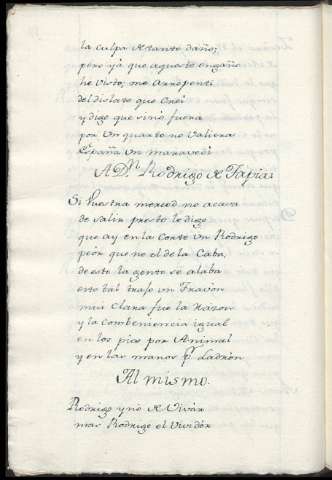 la culpa de tanto daño;
pero yá que aqueste engaño
he visto; me arrepentí
del dislate que creí
y digo que sino fuera
por Un quarto no Valiera
España Un maravedi
A Dn. Rodrigo de Tapia.
Si Vuestra merced no acava
de salir presto le digo
que ay en la Corte Un Rodrigo
peór que no el de la Caba,
de esto la gente se alaba
esto tal trajo Un
mui Clara fue la Razon
y la Combeniencia igual
en los pies por Animal
y en las manos pr. Ladrón
Al mismo.
Rodrigo y no de Vivár
mas Rodrigo el Vividór